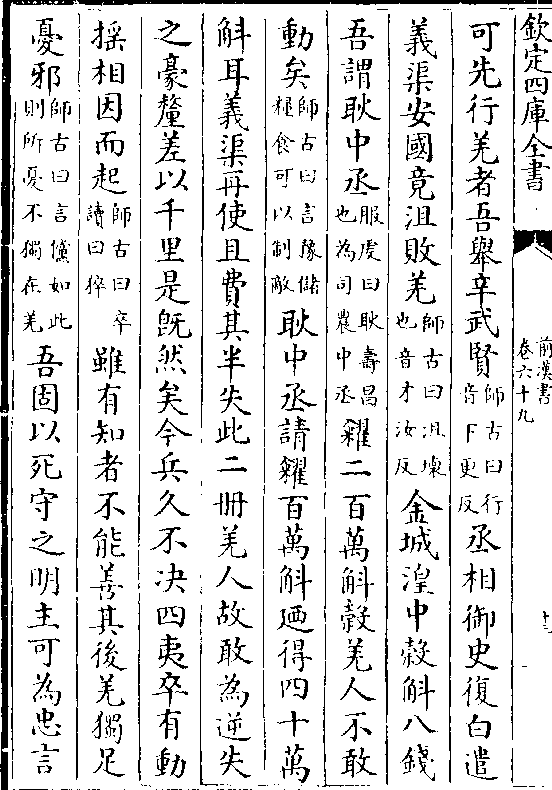 欽定四庫全書
前漢書
卷六十九
十二
可先行羌者吾舉辛武賢師古曰行音下更反丞相御史復白遣
義渠安國竟沮敗羌師古曰沮壞也音才汝反金城湟中穀斛八錢
吾謂耿中丞服虔曰耿壽昌也為司農中丞糴二百萬斛穀羌人不敢
動矣師古曰言豫儲糧食可以制敵耿中丞請糴百萬斛廼得四十萬
斛耳義渠再使且費其半失此二冊羌人故敢為逆失
之豪釐差以千里是旣然矣今兵久不決四夷卒有動
揺相因而起師古曰卒讀曰猝雖有知者不能善其後羌獨足
憂邪師古曰言儻如此則所憂不獨在羌吾固以死守之明主可為忠言